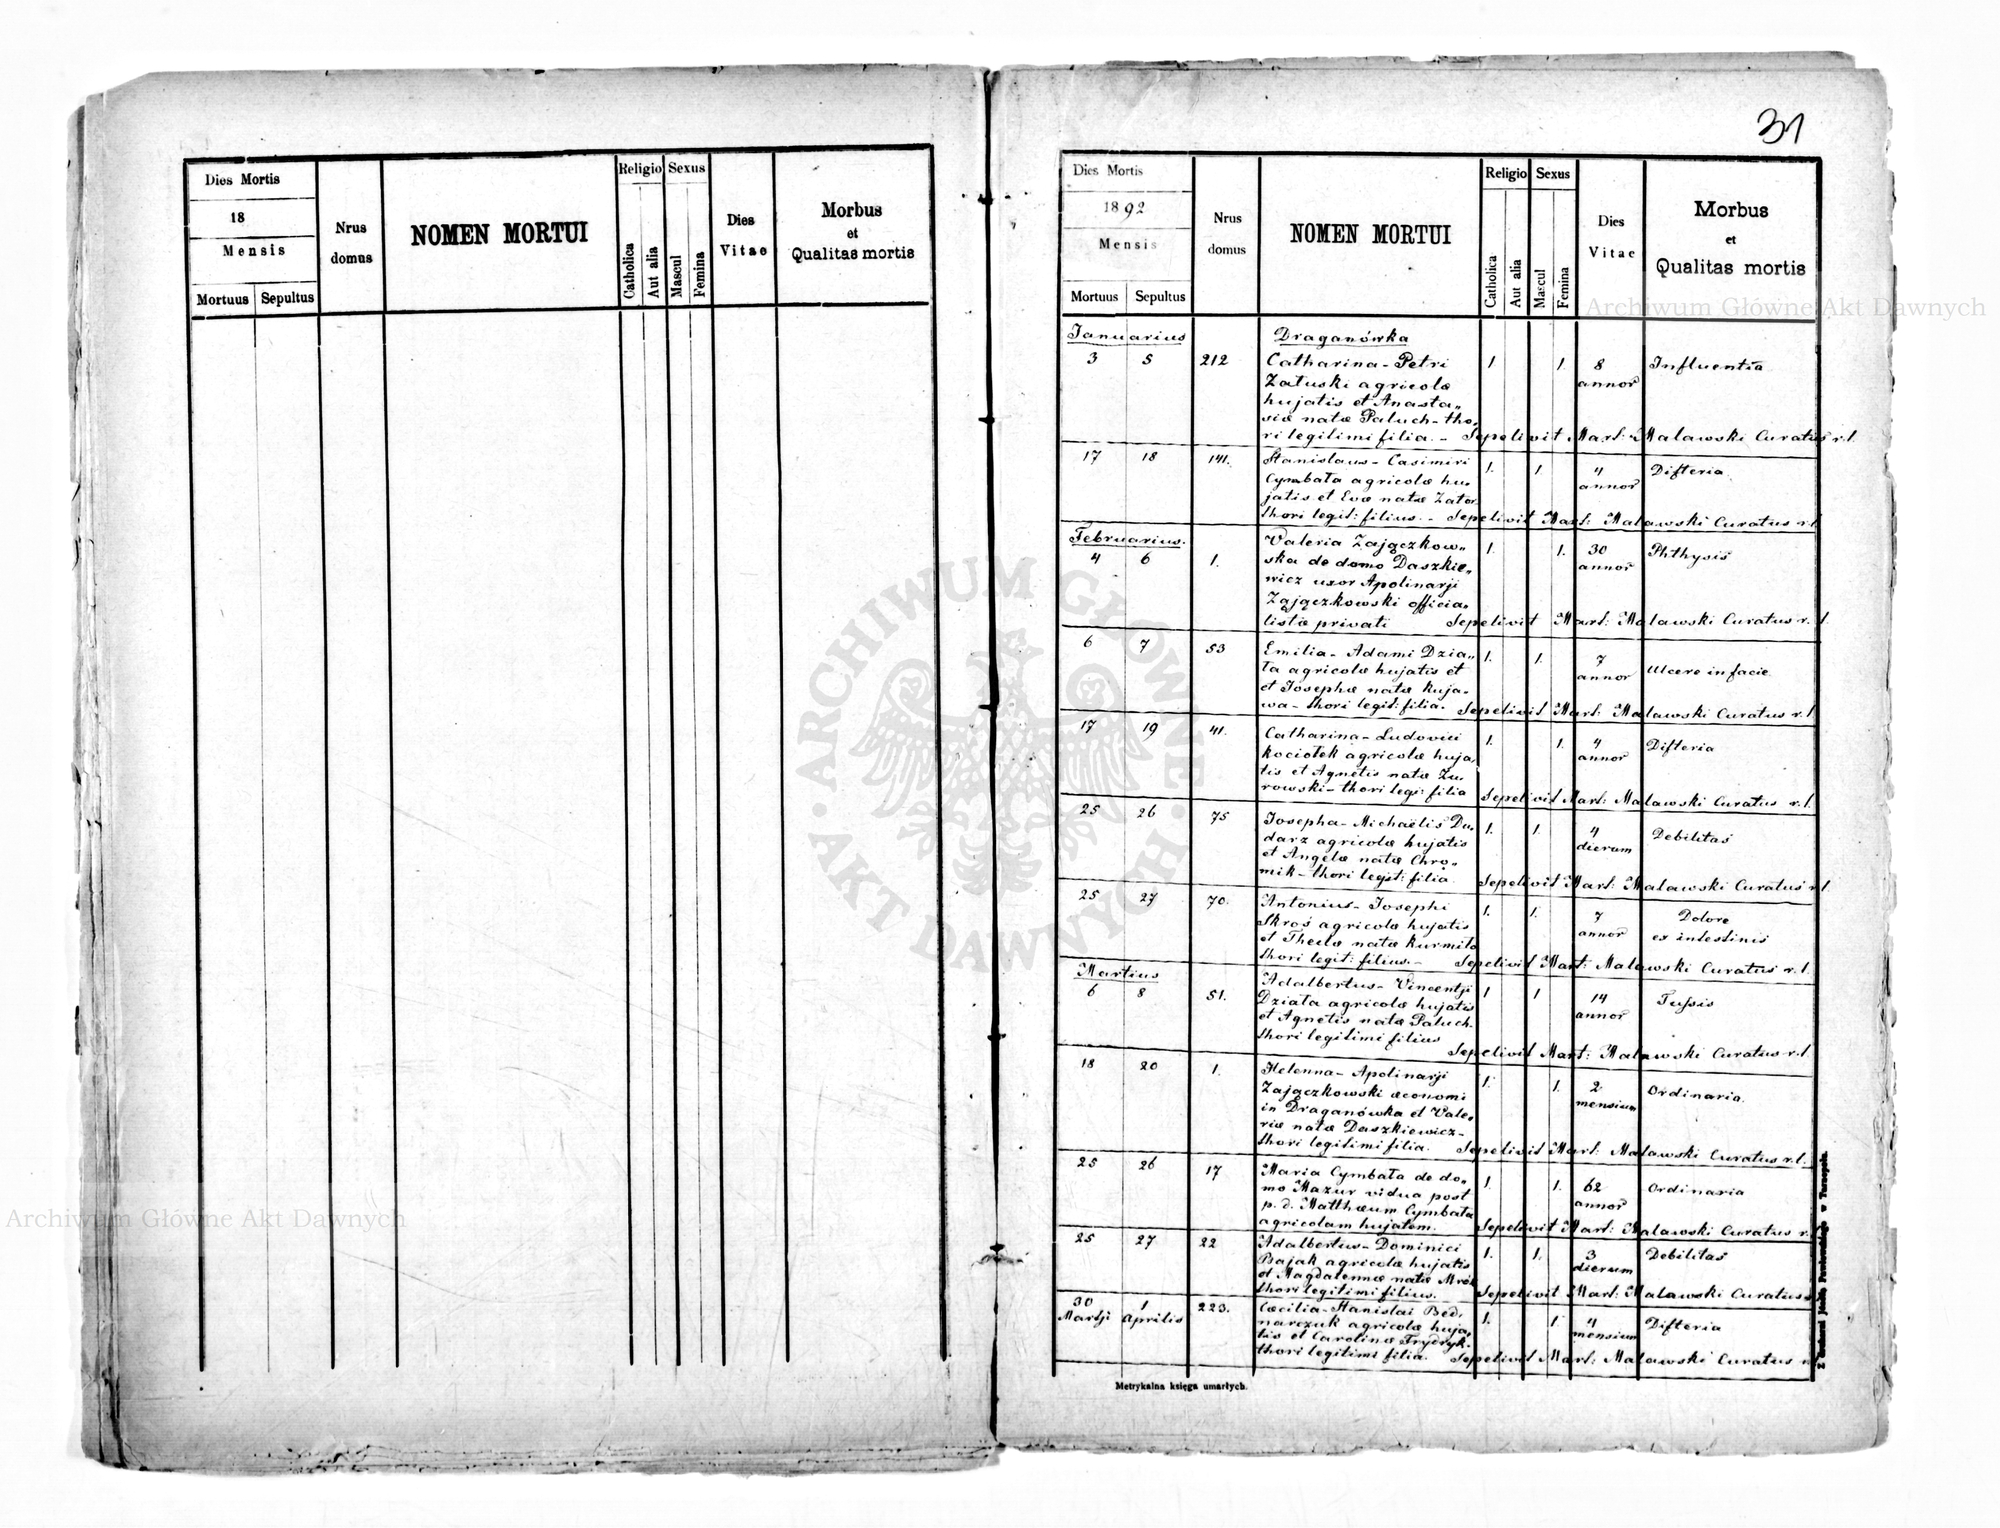 31
Dies Mortis
18
Mensis
Mortuus Sepultus
Nrus domus
NOMEN MORTUI
Religio Sexus
Catholica
Aut alia
Mascul
Femina
Dies Vitae
Morbus
et
Qualitas mortis
Dies Mortis
1892
Mensis
Mortuus Sepultus
Nrus domus
NOMEN MORTUI
Religio Sexus
Catholica
Aut alia
Mascul
Femina
Dies Vitae
Morbus
et
Qualitas mortis
Januarius Draganówka
3 5 212 Catharina - Petri 1 1. 8 annor Influentia
Załuski agricolæ
hujatis et Anasta„
siæ natæ Paluch - tho„
ri legitimi filia. - Sepelivit Mart: Malawski Curatus r.l.
17 18 141. Stanislaus - Casimiri 1. 1. 4 annor Difteria
Cymbała agricolæ hu„
jatis et Evæ natæ Zator
thori legit: filius. - Sepelivit Mart: Malawski Curatus r.l.
Februarius.
4 6 1. Valeria Zajączkow„ 1. 1. 30 annor Phthysis
ska de domo Daszkie„
wicz uxor Apolinarji
Zajączkowski officia„
listæ privati Sepelivit Mart: Malawski Curatus r.l.
6 7 53 Emilia - Adami Dzia„ 1. 1. 7 annor Ulcere in facie
ła agricolæ hujatis et
et Josephæ natæ Kuja„
wa - thori legit: filia. Sepelivit Mart: Malawski Curatus r.l.
17 19 41. Catharina - Ludovici 1. 1. 4 annor Difteria
Kociołek agricolæ huja„
tis et Agnetis natæ Żu„
rowski - thori legi: filia Sepelivit Mart: Malawski Curatus r.l.
25 26 75 Josepha - Michaëlis Du„ 1. 1. 4 dierum Debilitas
darz agricolæ hujatis
et Angelæ natæ Chro„
mik - thori legit: filia. Sepelivit Mart: Malawski Curatus r.l.
25 27 70. Antonius - Josephi 1. 1. 7 annor Dolore
Skroś agricolæ hujatis ex intestinis
et Theclæ natæ
thori legit: filius. - Sepelivit Mart: Malawski Curatus r.l.
Martius
6 8 51. Adalbertus - Vincentji 1 1 14 annor Tussis
Działa agricolæ hujatis
et Agnetis natæ Paluch
thori legitimi filius Sepelivit Mart: Malawski Curatus r.l.
18 20 1. Helenna - Apolinarji 1. 1. 2 mensium Ordinaria.
Zajączkowski œconomi
in Draganówka et Vale„
riæ natæ Daszkiewicz -
thori legitimi filia. Sepelivit Mart: Malawski Curatus r.l.
25 26 17 Maria Cymbała de do„ 1. 1. 62 annor Ordinaria
mo Mazur vidua post
p. d. Matthæum Cymbała
agricolam hujatem. Sepelivit Mart: Malawski Curatus r.
25 27 22 Adalbertus - Dominici 1. 1. 3 dierum Debilitas
Bajak agricolæ hujatis
et Magdalennæ natæ
thori legitimi filius. Sepelivit Mart: Malawski Curatus
30 Martji 1 Aprilis 223. Cæcilia - Stanislai Bed„ 1. 1. 4 mensium Difteria
narczuk agricolæ huja„
tis et Carolinæ Frydryk -
thori legitimi filia. Sepelivit Mart: Malawski Curatus
Metrykalna księga umarłych.
Archiwum Główne Akt Dawnych
Archiwum Główne Akt Dawnych
ARCHIWUM GŁÓWNE AKT DAWNYCH